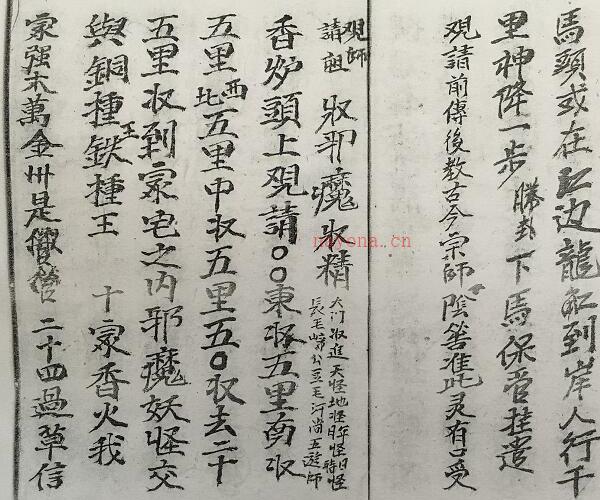 馬頭或在江边龍船到岸人行千
里神降一步勝卦下馬保管挂遣
覌請前傳後教古今宗師陰筶准此灵有口受
覌師請祖収邪魔収精大门收進天怪地怪年怪日怪時怪長毛五毛河尚五逰師
香炉頭上覌請〇〇東収五里南収
五里西北五里中収五里五〇収去二十
五里収到家宅之内邪魔妖怪交
與銅種王鉄種王十家香火我
家强木萬金州是二十四過草信
nayona.cn